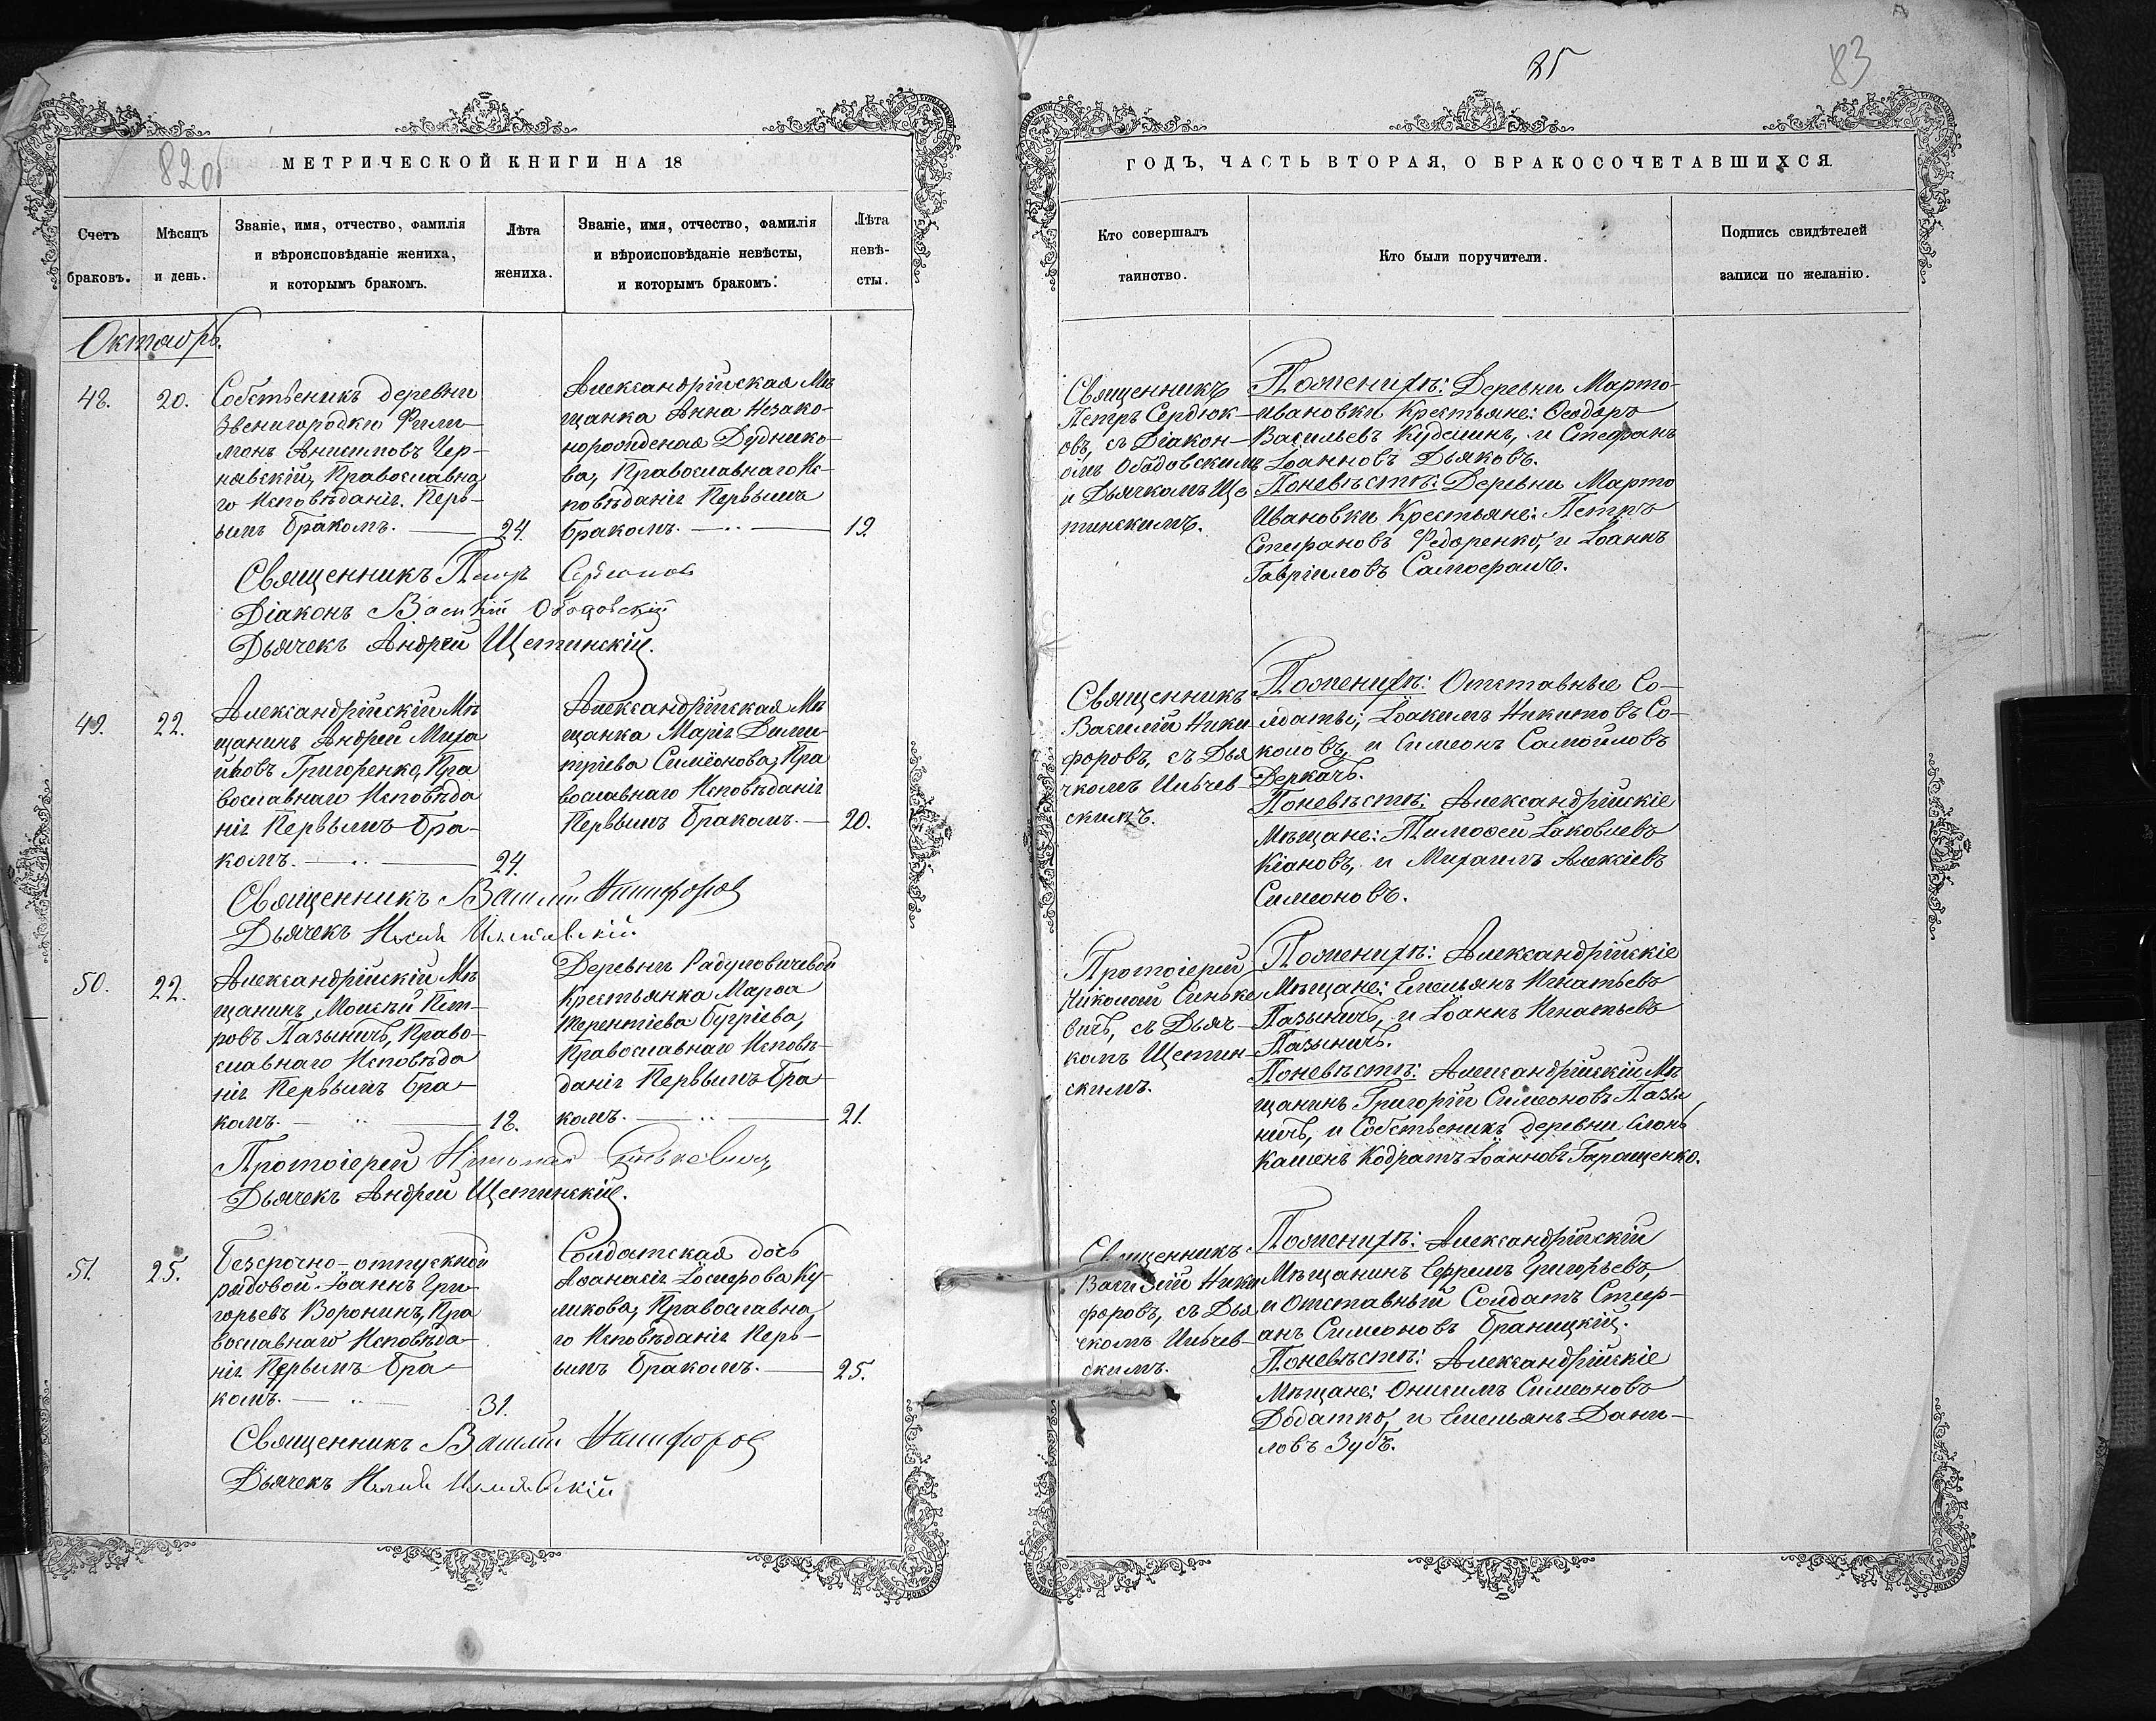 82об
МЕТРИЧЕСКОЙ КНИГИ НА 18
Счетъ браковъ.
Мѣсяцъ и день.
Званіе, имя, отчество, фамилія
и вѣроисповѣданіе жениха,
и которымъ бракомъ.
Лѣта жениха.
Званіе, имя, отчество, фамилія
и вѣроисповѣданіе невѣсты,
и которымъ бракомъ.
Лѣта невѣ-
сты.
Октябрь.
48. 20.
Собственикъ деревни
Звенигородки Фили-
монъ Анисимовъ Чер-
нявскій, Православна
го Исповѣданія. Перв-
ымъ бракомъ. — 24.
Александрійская Мѣ
щанка Анна Незако-
норожденая Луднико-
ва, Православнаго Ис-
повѣданія Первымъ
бракомъ. — 19.
Священникъ Петръ Сердюковъ
Діаконъ Василій Ободовскій
Дьячекъ Андрей Щетинскій.
49. 22.
Александрійскій Мѣ
щанинъ Андрей Миха
йловъ Григоренко, Пра
вославнаго Исповѣда
нія Первымъ бра-
комъ. — 24.
Александрійская Мѣ
щанка Марія Дими-
тріева Симеонова, Пра
вославнаго Исповѣданія
Первымъ бракомъ. — 20.
Священникъ Василій Никифоровъ
Дьячекъ
50. 22.
Александрійскій Мѣ
щанинъ Моисей Пет-
ровъ Пазыничъ, Право-
славнаго Исповѣда
нія Первымъ бра-
комъ. — 18.
Деревни Радуловичевой
Крестьянка Марѳа
Терентіева Бугріева,
Православнаго Исповѣ-
данія Первымъ бра-
комъ. — 21.
Протоіерей Николай Синькевичъ
Дьячекъ Андрей Щетинскій.
51. 25.
Безсрочно-отпускной
рядовой Іоаннъ Гри-
горьевъ Воронинъ, Пра
вославнаго Исповѣда-
нія Первымъ бра-
комъ. — 31.
Солдатская дочь
Аѳанасія Іосифова Ку-
ликова, Православна
го Исповѣданія Перв-
ымъ бракомъ. — 25.
Священникъ Василій Никифоровъ
Дьячекъ
85
83
ГОДЪ, ЧАСТЬ ВТОРАЯ, О БРАКОСОЧЕТАВШИХСЯ.
Кто совершалъ
таинство.
Кто были поручители.
Подпись свидѣтелей
записи по желанію.
Священникъ
Петръ Сердюк-
овъ, съ Діакон-
омъ Ободовскимъ
и Дьячкомъ Ще
тинскимъ.
Поженихѣ: Деревни Марто-
ивановки Крестьяне: Ѳеодоръ
Васильевъ Куделинъ, и Стефанъ
Іоанновъ Дьяковъ.
Поневѣстѣ: Деревни Марто
Ивановки Крестьяне: Петръ
Стефановъ Федоренко, и Іоаннъ
Гавріиловъ Самофалъ.
Священникъ
Василій Ники-
форовъ, съ Дья
чкомъ
скимъ.
Поженихѣ: Отставные Со-
лдаты; Іоакимъ Никитовъ Со-
коловъ, и Симеонъ Самойловъ
Деркачъ.
Поневѣстѣ: Александрійскіе
Мѣщане: Тимоѳей Іаковлевъ
Кіановъ, и Михаилъ Алексіевъ
Симеоновъ.
Протоіерей
Николай Синьке
вичъ, съ Дьяч-
комъ Щетин-
скимъ.
Поженихѣ: Александрійскіе
Мѣщане: Емельянъ Игнатьевъ
Пазыничъ, и Іоаннъ Игнатьевъ
Пазыничъ.
Поневѣстѣ: Александрійскій Мѣ
щанинъ Григорій Симеоновъ Пазы
ничъ, и Собственикъ деревни
Кодратъ Іоанновъ Гаращенко.
Священникъ
Василій Ники
форовъ, съ Дья
чкомъ
скимъ.
Поженихѣ: Александрійскій
Мѣщанинъ Ефремъ Григорьевъ,
и Отставный Солдатъ Стеф-
анъ Симеоновъ Браницкій.
Поневѣстѣ: Александрійскіе
Мѣщане: Онисимъ Симеоновъ
Додатко, и Емельянъ Дани-
ловъ Зубъ.